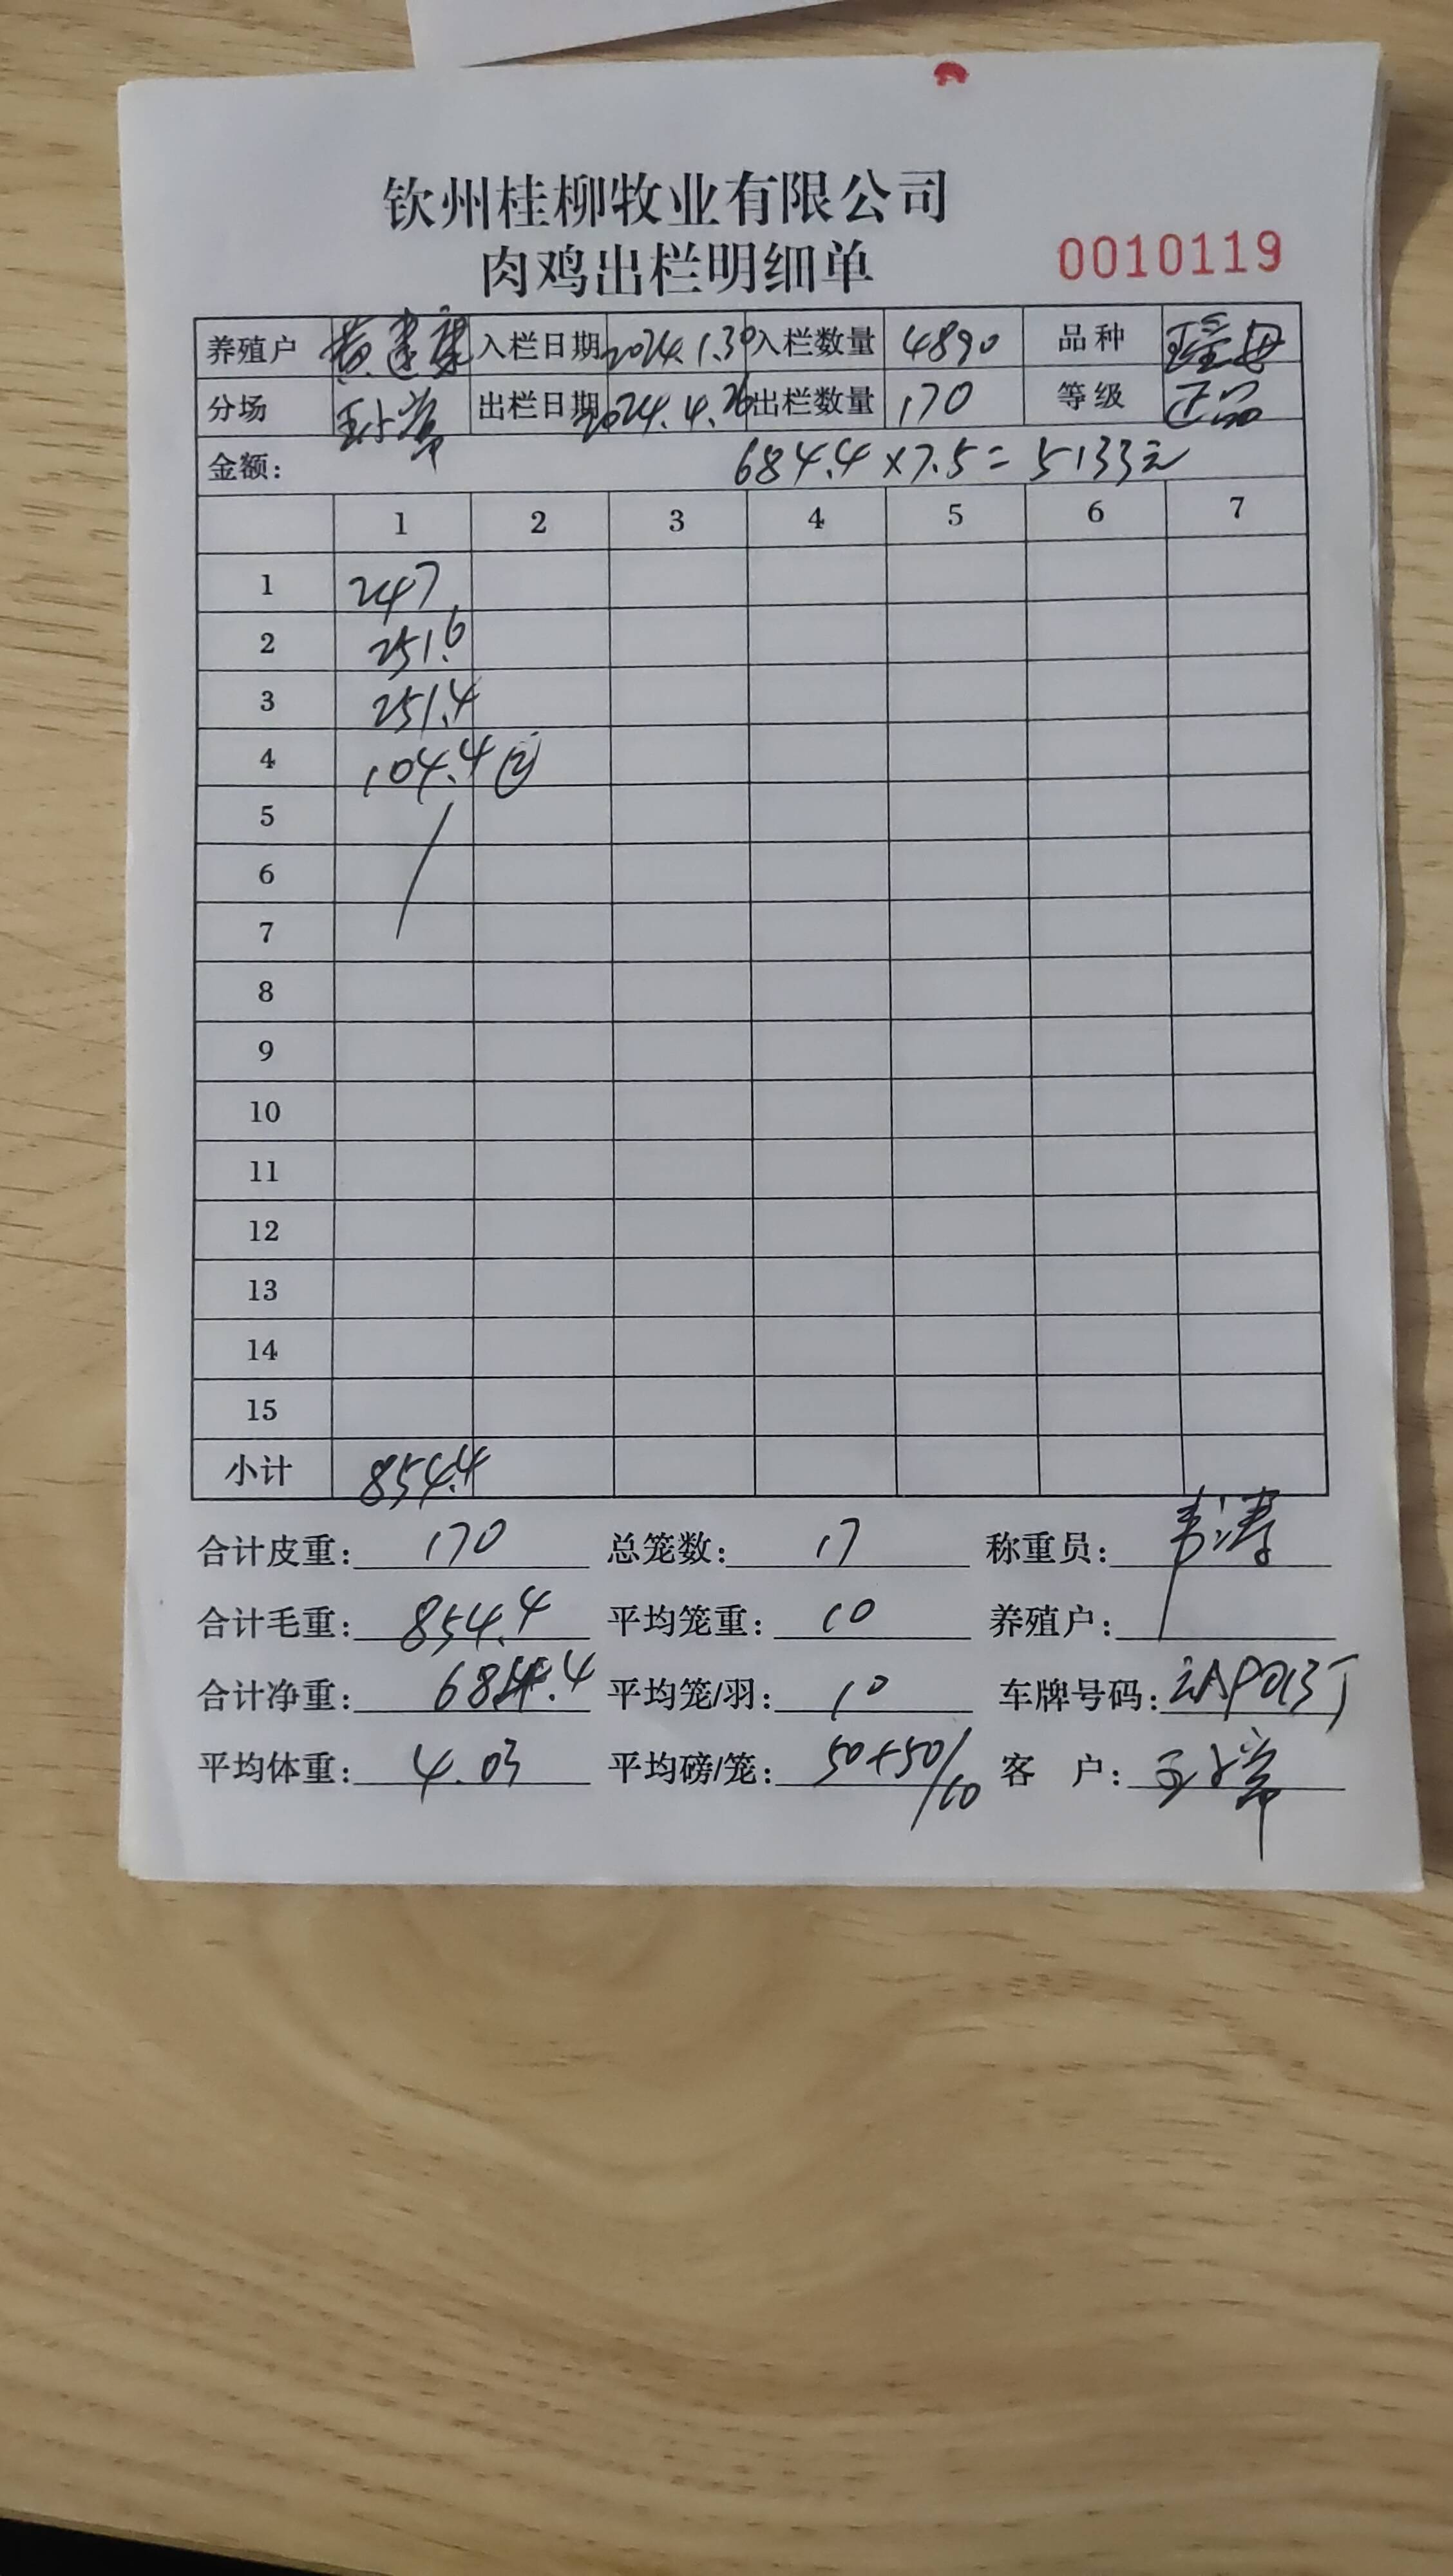 钦州桂柳牧业有限公司
肉鸡出栏明细单 0010119
养殖户 黄建康 入栏日期 2024.1.30 入栏数量 4890 品种
分场 出栏日期 2024.4.26 出栏数量 170 等级 正品
金额: 684.4×7.5=5133元
1 2 3 4 5 6 7
1 247
2 251.6
3 251.4
4 104.4 ②
5
6
7
8
9
10
11
12
13
14
15
小计 854.4
合计皮重: 170 总笼数: 17 称重员: 韦涛
合计毛重: 854.4 平均笼重: 10 养殖户:
合计净重: 684.4 平均笼/羽: 10 车牌号码:
平均体重: 4.03 平均磅/笼: 50+50/10 客 户: